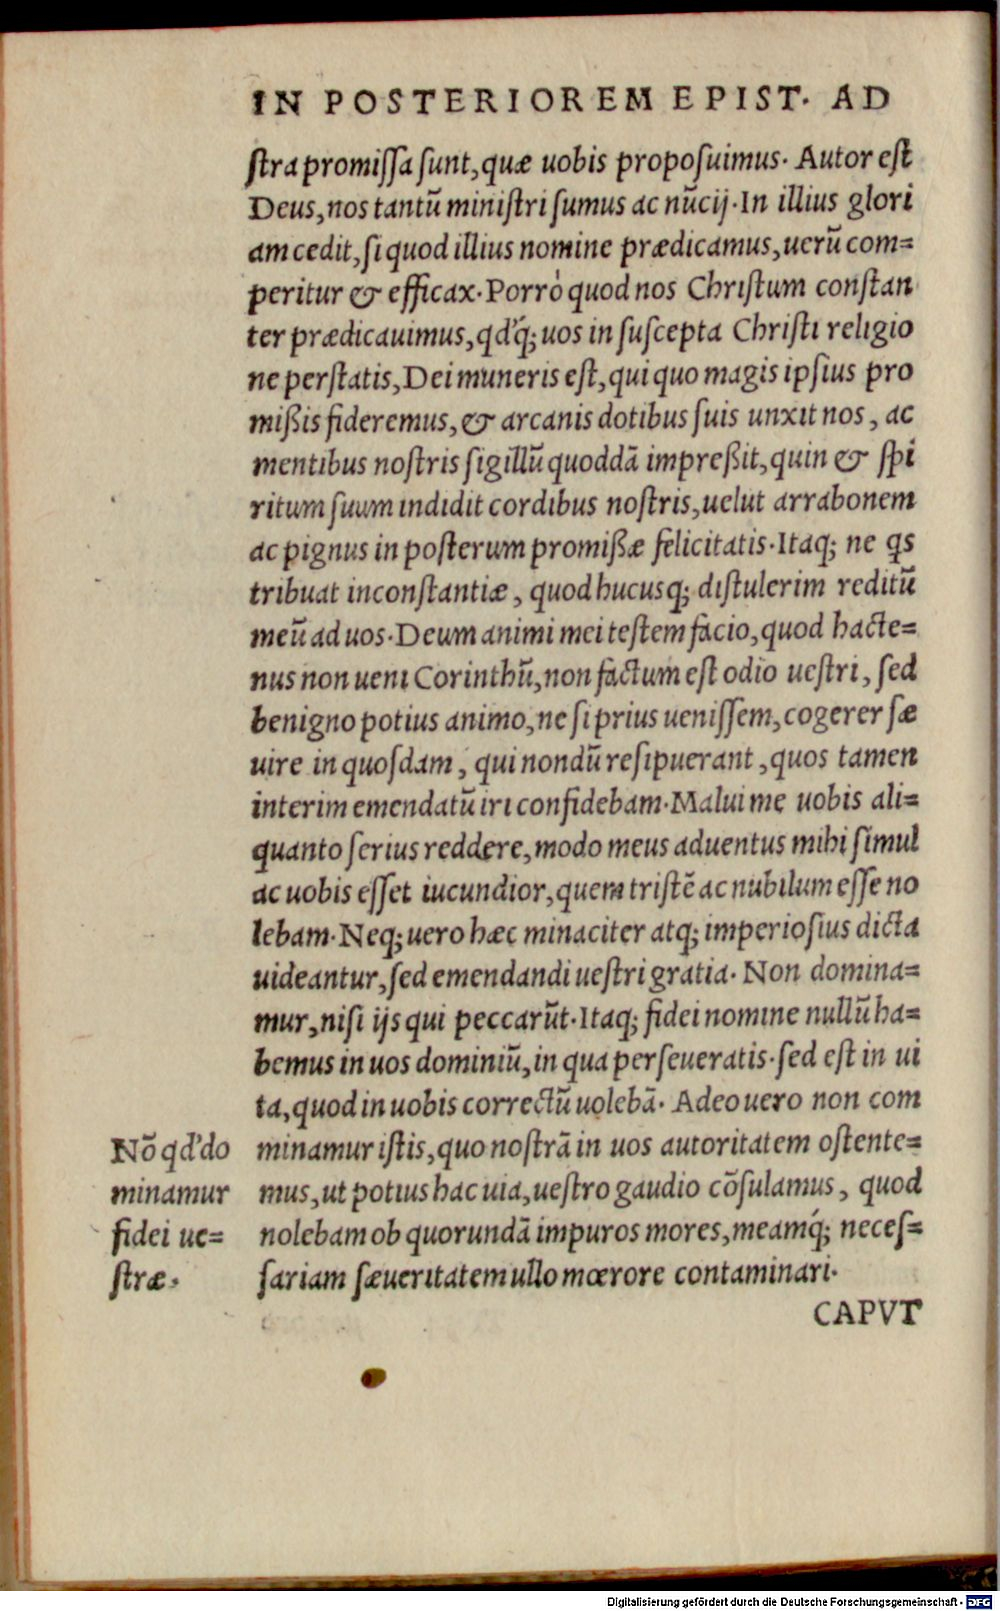 IN POSTERIOREM EPIST. AD
ſtra promiſſa ſunt, quæ uobis propoſuimus. Autor eſt
Deus, nos tantũ miniſtri ſumus ac nũcij. In illius glori
am cedit, ſi quod illius nomine prædicamus, uerũ com=
peritur & efficax. Porrò quod nos Chriſtum conſtan
ter prædicauimus, qd'q́; uos in ſuſcepta Chriſti religio
ne perſtatis, Dei muneris eſt, qui quo magis ipſius pro
mißis fideremus, & arcanis dotibus ſuis unxit nos, ac
mentibus noſtris ſigillũ quoddã impreßit, quin & ſpi
ritum ſuum indidit cordibus noſtris, uelut arrabonem
ac pignus in poſterum promißæ felicitatis. Itaq; ne qs
tribuat inconſtantiæ, quod hucusq; diſtulerim reditũ
meũ ad uos. Deum animi mei teſtem facio, quod hacte=
nus non ueni Corinthũ, non factum eſt odio ueſtri, ſed
benigno potius animo, ne ſi prius ueniſſem, cogerer ſæ
uire in quoſdam, qui nondũ reſipuerant, quos tamen
interim emendatũ iri confidebam. Malui me uobis ali=
quanto ſerius reddere, modo meus aduentus mihi ſimul
ac uobis eſſet iucundior, quem triſtẽ ac nubilum eſſe no
lebam. Neq; uero hæc minaciter atq; imperioſius dicta
uideantur, ſed emendandi ueſtri gratia. Non domina=
mur, niſi ijs qui peccarũt. Itaq; fidei nomine nullũ ha=
bemus in uos dominiũ, in qua perſeueratis. ſed eſt in ui
ta, quod in uobis correctũ uolebã. Adeo uero non com
minamur iſtis, quo noſtrã in uos autoritatem oſtente=
mus, ut potius hac uia, ueſtro gaudio cõſulamus, quod
nolebam ob quorundã impuros mores, meamq́; neceſ=
ſariam ſæueritatem ullo mœrore contaminari.
Nõ qd' do
minamur
fidei ue=
ſtræ.
CAPVT
Digitalisierung gefördert durch die Deutsche Forschungsgemeinschaft - DFG